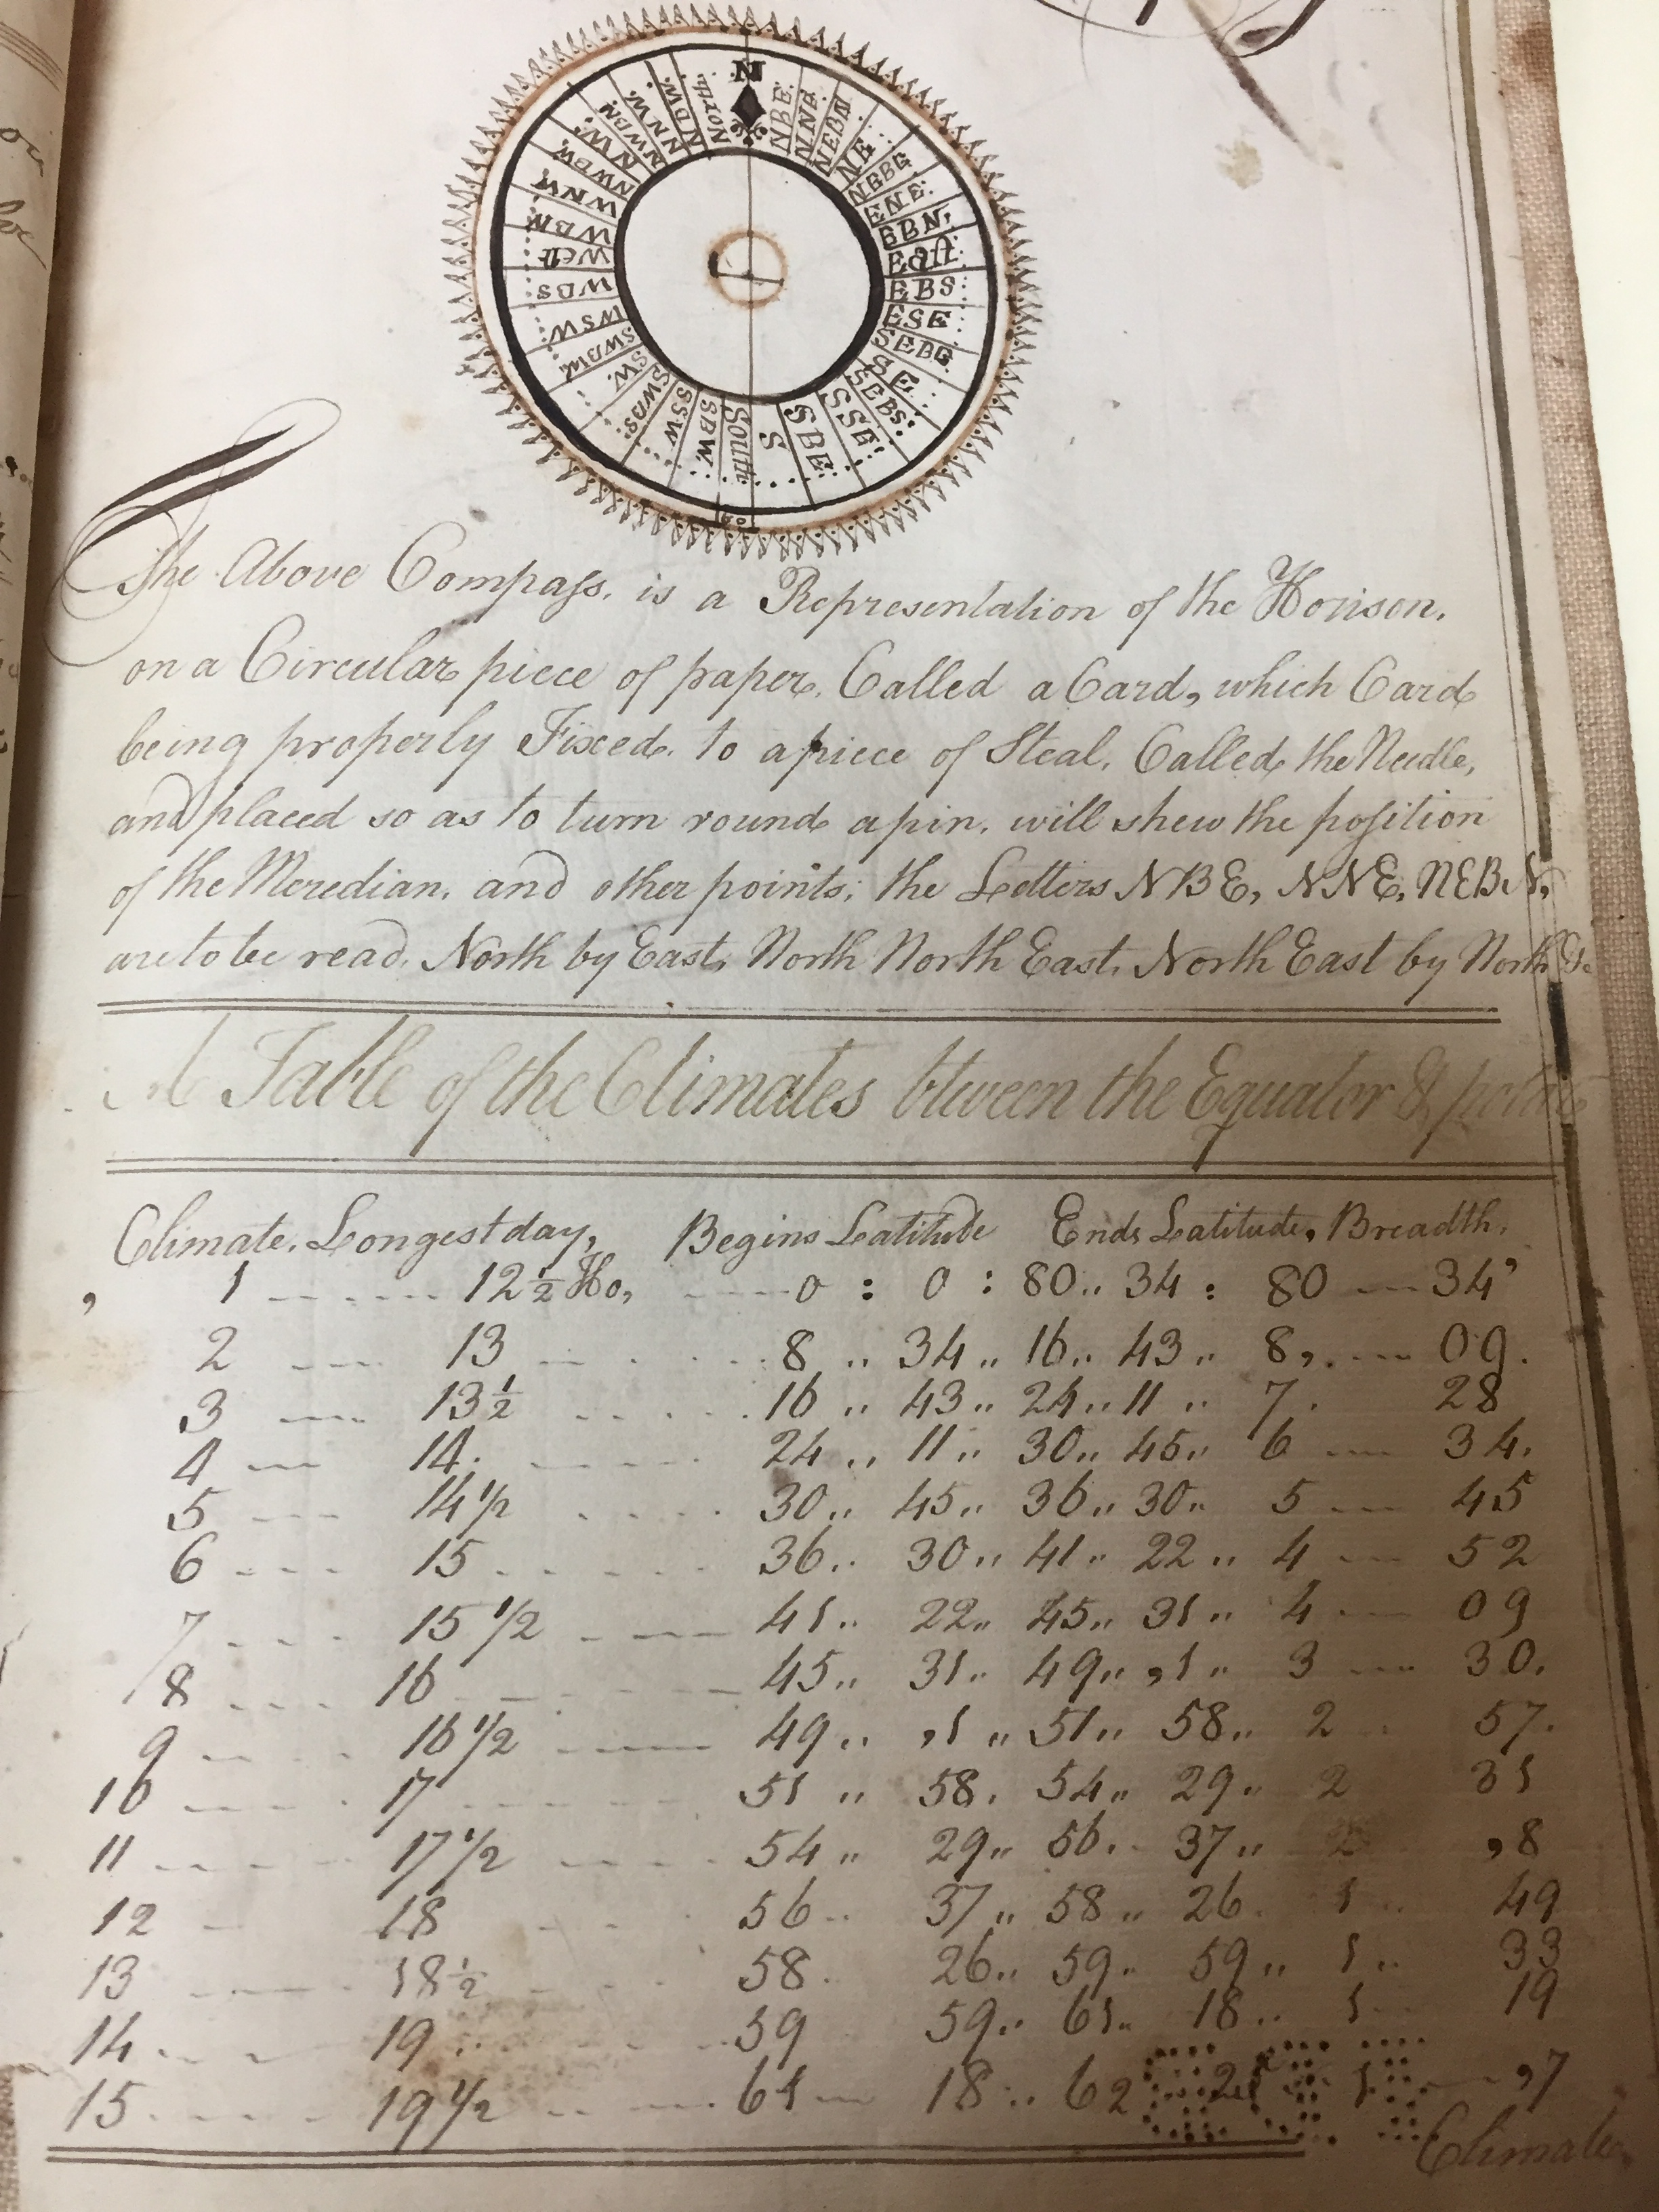 N
NBE.
NNE.
NEBN
NE
NEBE
ENE.
EBN.
East
EBS
ESE
SEBE
SE
SEBS.
SSE
SBE
S
South
SBW.
SSW
SWBS.
SW.
SWBW.
WSW
WBS
West
WBN
WNW
NWBW.
NW.
NWBN
NNW.
NBW.
North
The Above Compaſs. is a Representation of the Horison.
on a Circular piece of paper. Called a Card, which Card
being properly Fixed. to a piece of Steal. Called the Needle,
and placed so as to turn round a pin. will shew the poſition
of the Meredian. and other points; the Letters NBE, NNE, NEBN,
are to be read. North by East, North North East. North East by North &c
A Table of the Climates btween the Equator &
Climate. Longest day, Begins Latitude Ends Latitude, Breadth.
, 1 ------ 12 ½ Ho, ---- 0 : 0 : 80 .. 34 : 80 --- 34'
2 --- 13 --- 8 .. 34 .. 16 .. 43 .. 8,. --- 09.
3 --- 13 ½ ..... 16 .. 43 .. 24 .. 11 .. 7. 28
4 --- 14. ---- 24 .. 11 .. 30 .. 45 .. 6 --- 34.
5 --- 14 1/2 .... 30 .. 45 .. 36 .. 30 .. 5 --- 45
6 --- 15 ..... 36 .. 30 .. 41 .. 22 .. 4 --- 52
7 ---- 15 1/2 ---- 41 .. 22 .. 45 .. 31 .. 4 --- 09
8 ---- 16 ------ 45 .. 31 .. 49 .. ,1 .. 3 --- 30.
9 ---- 16 1/2 ---- 49 .. ,1 .. 51 .. 58 .. 2 .. 57.
10 ---- 17 ------ 51 .. 58. 54 .. 29 .. 2 31
11 ----- 17 1/2 ---- 54 .. 29 .. 56 .. 37 .. 2 ,8
12 - 18 -- 56 .. 37 .. 58 .. 26. 1 .. 49
13 ---- 18 ½ ---- 58. 26 .. 59 .. 59 .. 1 .. 33
14 --- 19 ..... 59 59 .. 61 .. 18 .. 1 - 19
15 ---- 19 1/2 ---- 61 -- 18 .. 62 1 -- ,7
Climate.